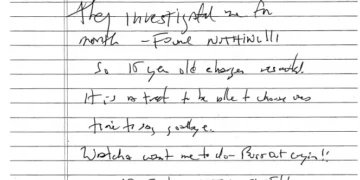 they investigated me for
month - Found NOTHING!!!
So 15 year old charges
It is a treat to be able to choose ones
time to say goodbye.
Watcha want me to do - Burst out crying!!